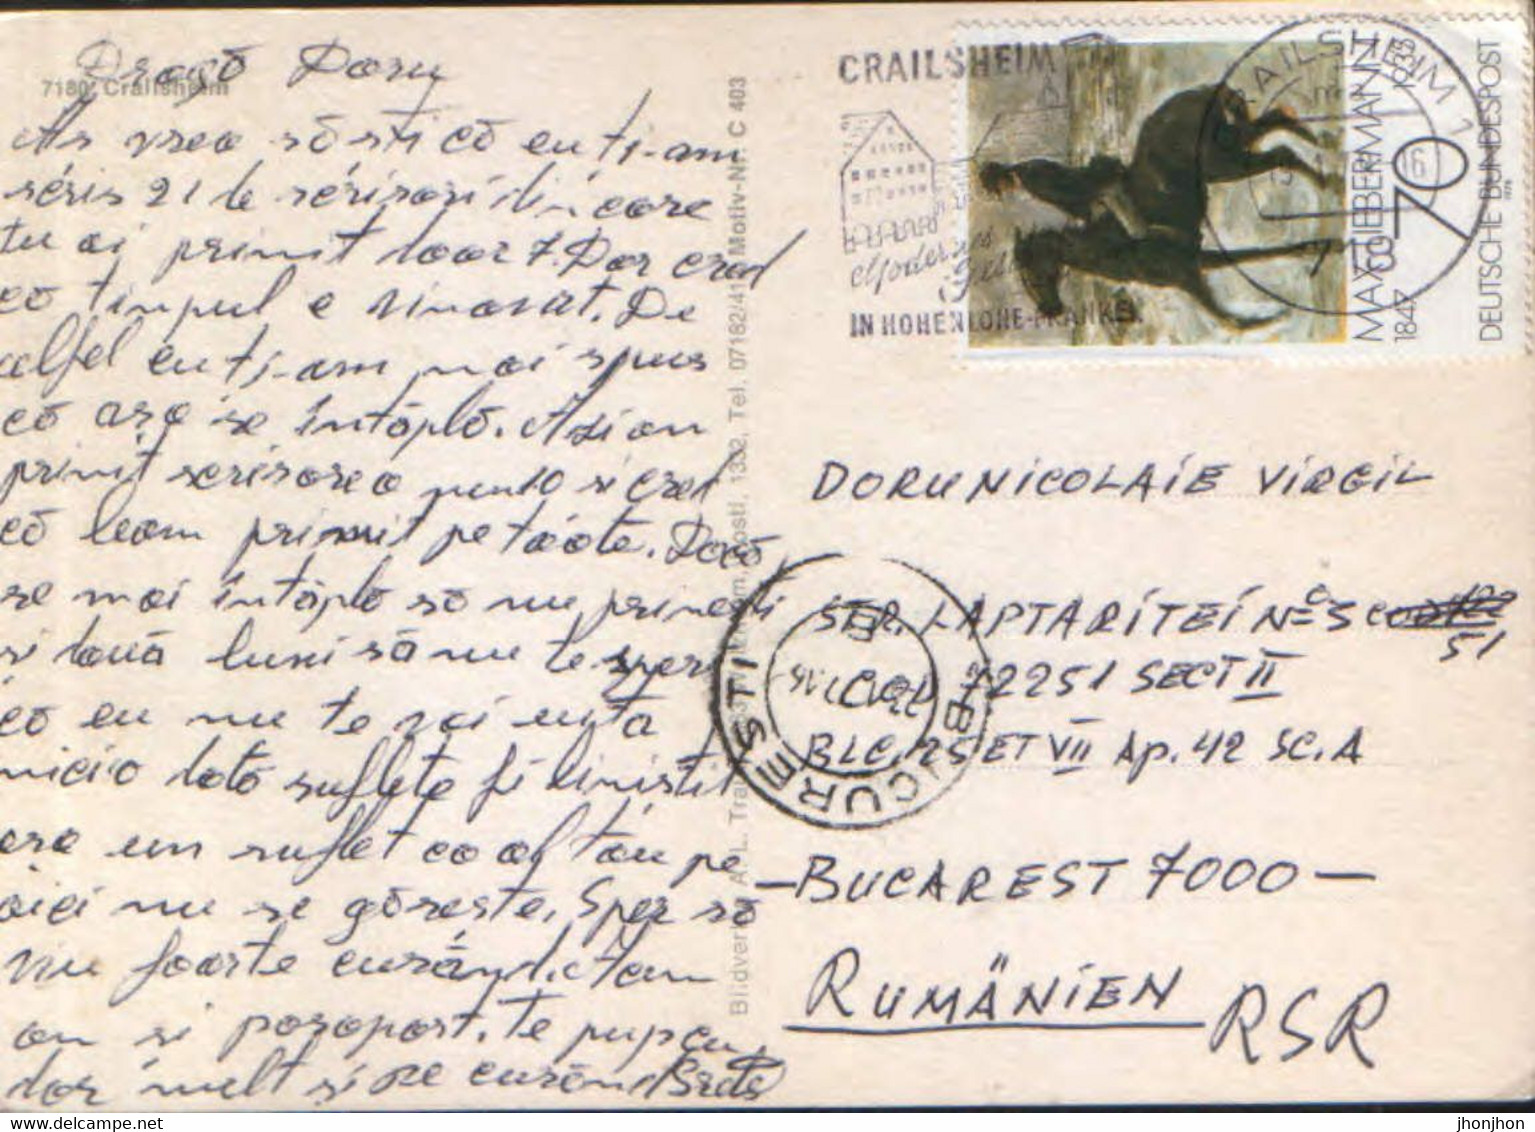 7180 Crailsheim
Dragă Doru
As vrea să sti că eu ti-am
séris 21 de sérisori din care
tu ai primit doar 7. Dar cred
că timpul e vinovat. De
altfel eu ti-am mai spus
că asa se întâplă. Azi am
primit scrisorea nu 10 si cred
că leam primit pe toate. Dacă
se mai întâplă să nu primesti
si două luni să nu te speri
că eu nu te voi uita
nicio dată suflete fi linistit
asa un suflet ca al tău pe
aici nu se găseste. Sper să
viu foarte curând. Stam
am si pasaport. Te pupcu
dor mult si pe curând
Bildverlag A. L. Motiv-Nr. C 403
CRAILSHEIM
Modernes
IN HOHENLOHE-FRANKEN.
CRAILSHEIM 1
16
MAX LIEBERMANN
1847 1935
70
DEUTSCHE BUNDESPOST
DORU NICOLAIE VIRGIL
STR. LAPTARITEI No 5
51
COD 72251 SECT II
BLC. 25 ET VII Ap. 42 SC. A
BUCURESTI
-BUCAREST 7000-
RUMÄNIEN RSR
jhonjhon